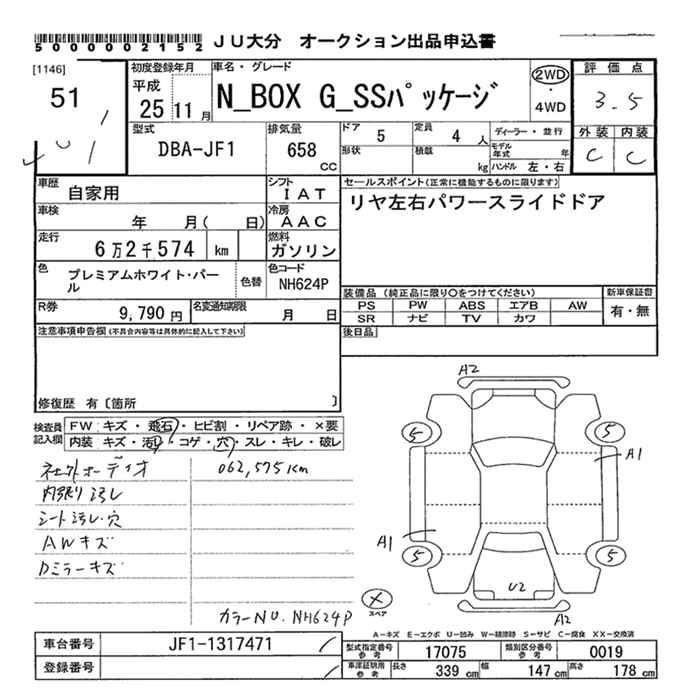 5000002152 JU大分 オークション出品申込書
[1146]
51
初度登録年月
平成
25 11月
車名・グレード
N_BOX G_SSパッケージ
2WD
・
4WD
評価点
3.5
外装 内装
C C
型式
DBA-JF1
排気量
658
CC
ドア 5
定員 4 人
ディーラー・並行
形状
積載 kg
モデル年式 年
ハンドル 左・右
車歴 自家用
シフト IAT
セールスポイント(正常に機能するものに限ります)
リヤ左右パワースライドドア
車検 年 月( 日)
冷房 AAC
走行 6万2千574 km
燃料 ガソリン
色 プレミアムホワイト・パール
色替
色コード NH624P
装備品(純正品に限り○をつけてください)
新車保証書
PS PW ABS エアB AW
有・無
SR ナビ TV カワ
R券 9,790円
名変通知期限 月 日
後日品
注意事項申告欄(不具合内容等は具体的に記入して下さい)
修復歴 有〔箇所 〕
検査員記入欄
FW キズ・飛石・ヒビ割・リペア跡・×要
内装 キズ・汚レ・コゲ・穴・スレ・キレ・破レ
社外オーディオ 062,575km
内張り汚レ
シート汚レ・穴
AWキズ
Dミラーキズ
カラーNO. NH624P
A2
5 5
A1
A1
5 5
U2
A2
×
スペア
A-キズ E-エクボ U-凹み W-補修跡 S-サビ C-腐食 XX-交換済
車台番号 JF1-1317471
登録番号
型式指定番号参考 17075
類別区分番号参考 0019
車庫証明用参考 長さ 339cm 幅 147cm 高さ 178cm